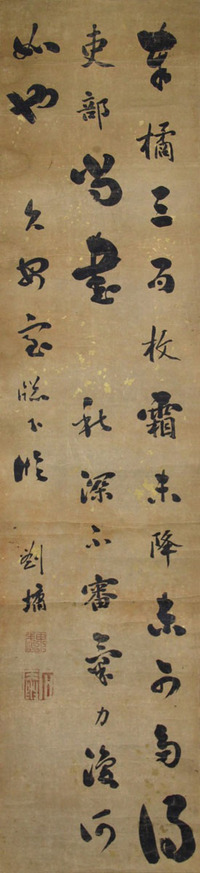 奉橘三百枚霜未降未可多得
吏部尚書 秋深不審氣力復何
如也 久安室臨下帷
劉墉